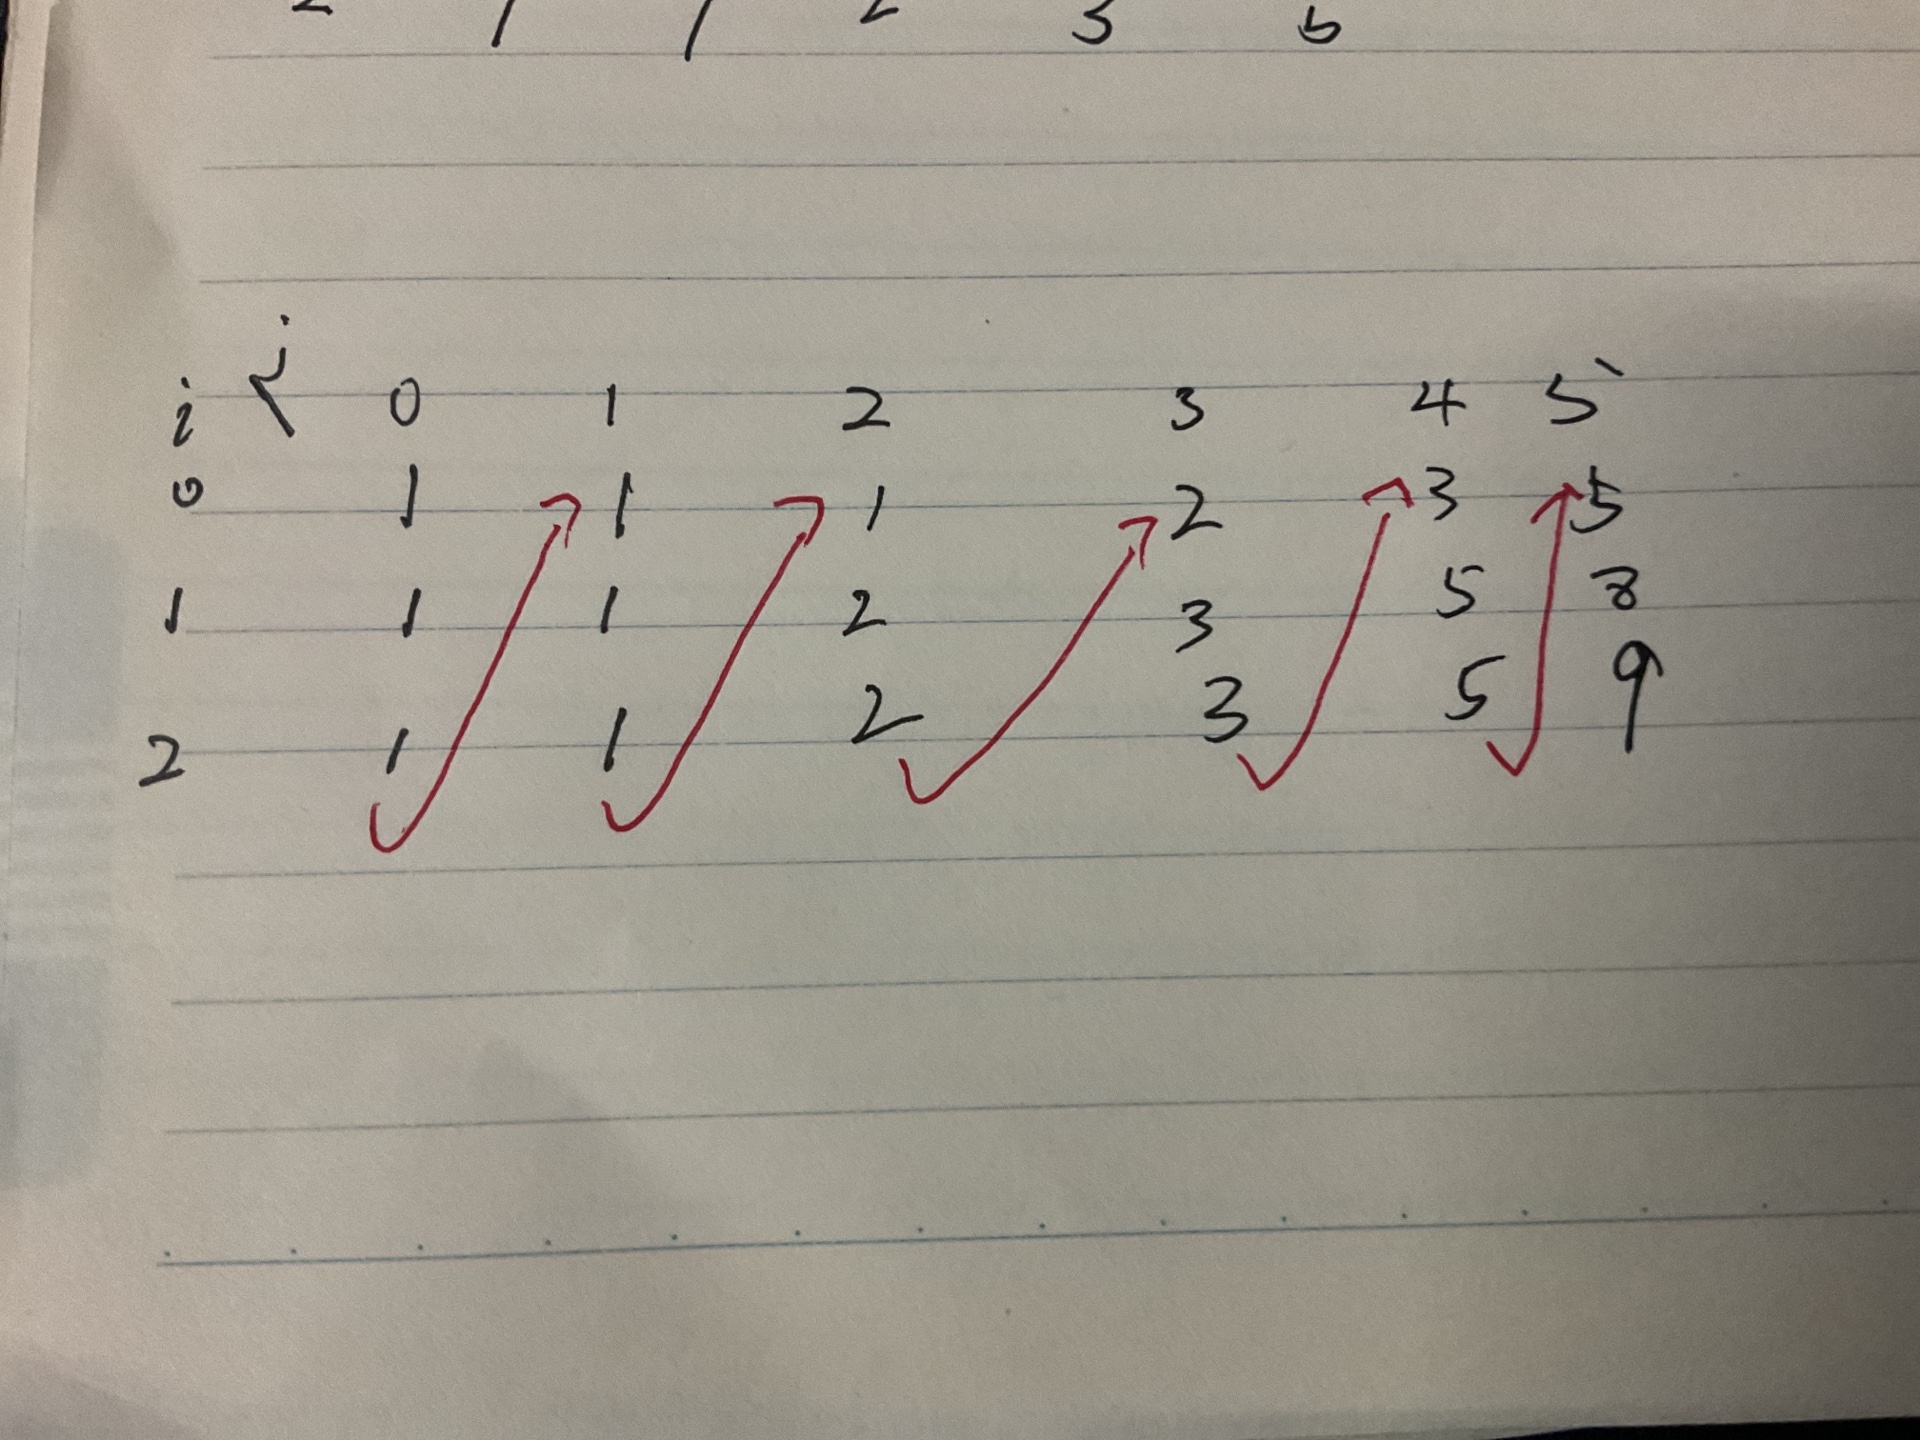 i j 0 1 2 3 4 5
0 1 1 1 2 3 5
1 1 1 2 3 5 8
2 1 1 2 3 5 9